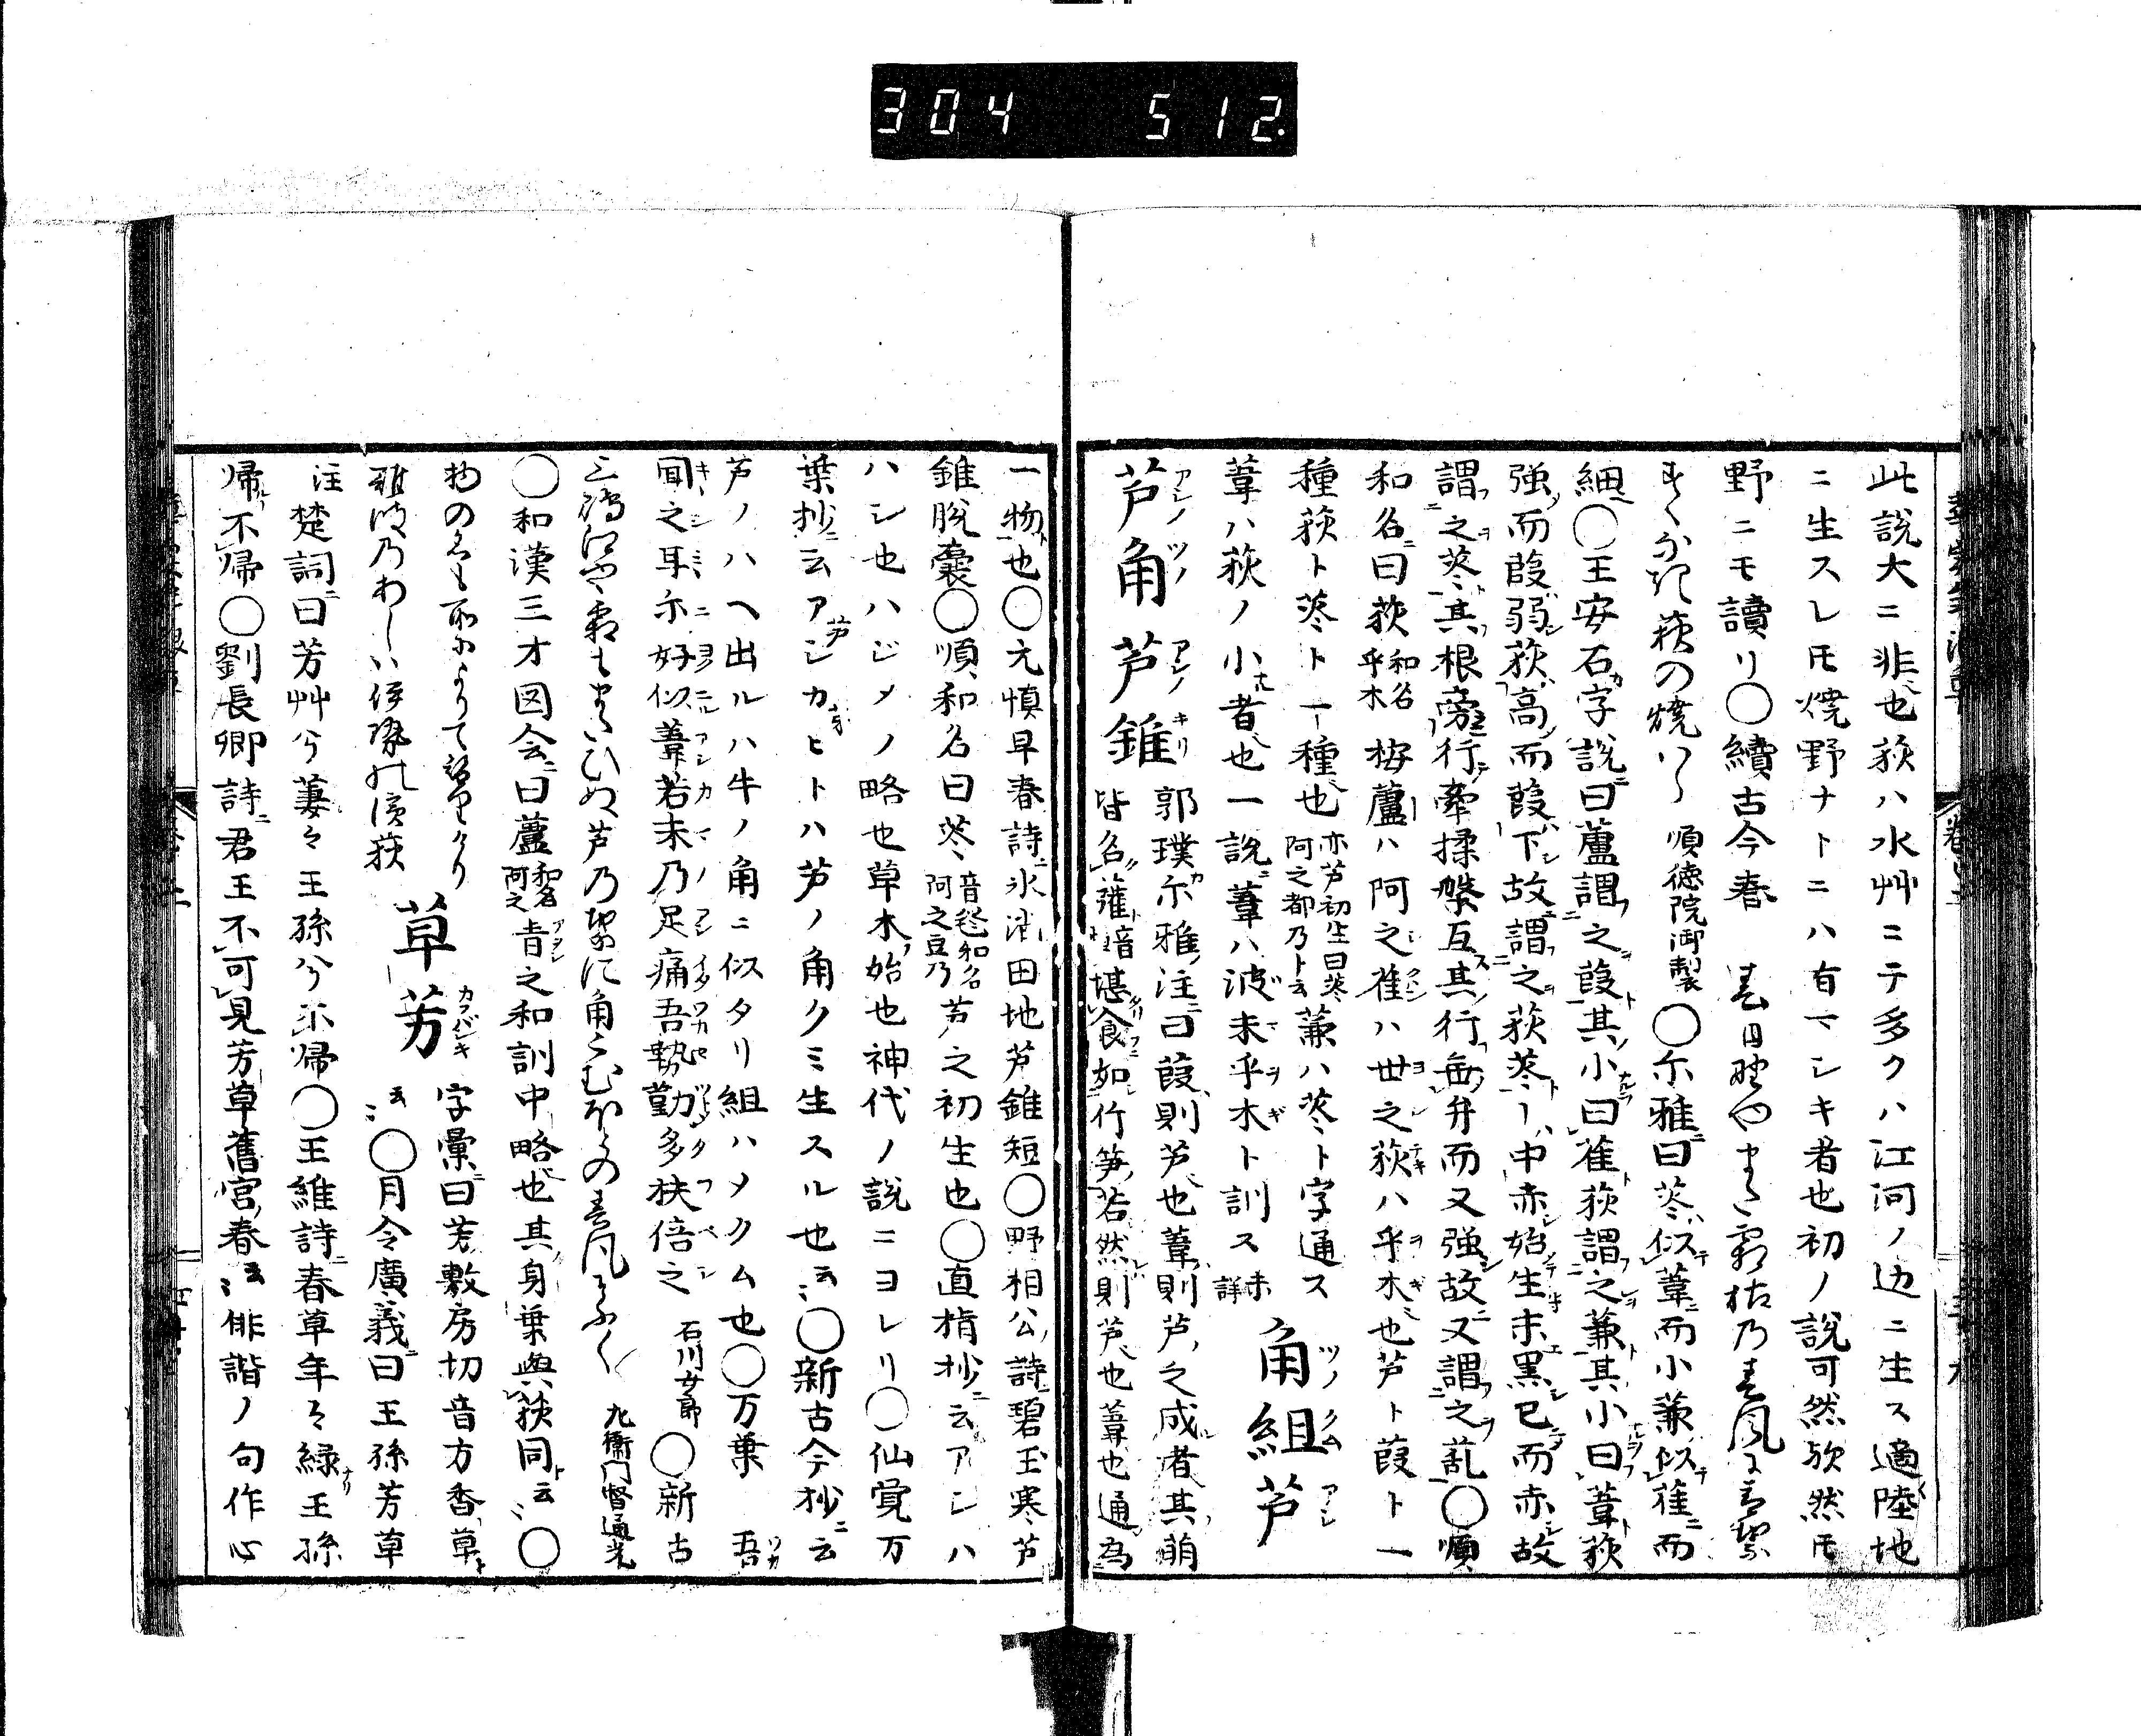 304 512.
此説大ニ非也荻ハ水艸ニテ多クハ江河ノ辺ニ生ス適陸地
ニ生スレ𪜈焼野ナトニハ有マシキ者也初ノ説可然欤然𪜈
野ニモ讀リ〇續古今春 春日野やまた霜枯乃春風に青葉
すくなき荻の焼 順徳院御製〇尓雅曰菼似葦而小蒹似萑而
細〇王安石字説曰蘆謂之葭其小曰萑荻謂之蒹其小曰葦荻
強而葭弱荻高而葭下故謂之荻菼中赤始生末黒已而赤故
謂之菼其根旁行牽揉槃互其行無弁而又強故又謂之䒟〇順
和名曰荻和名乎木 按蘆ハ阿之萑ハ世之荻ハ乎木也芦ト葭ト一
種荻ト菼ト一種也亦芦初生曰菼阿之都乃ト云蒹ハ菼ト字通ス
葦ハ荻ノ小者也一説葦ハ波末乎木ト訓ス未詳 角組芦
芦角 芦錐 郭璞尓雅注曰葭則芦也葦則芦之成者其萌
皆名虇音 堪食如竹笋若然則芦也葦也通為
一物也〇元慎早春詩氷消田地芦錐短〇野相公詩碧玉寒芦
錐脱嚢〇順和名曰菼音毯和名阿之豆乃芦之初生也〇直指抄云アシハ
ハシ也ハジメノ略也草木始也神代ノ説ニヨレリ〇仙覚万
葉抄云アシカヒトハ芦ノ角クミ生スル也云〻〇新古今抄云
芦ノハヘ出ルハ牛ノ角ニ似タリ組ハメクム也〇万葉 吾
聞之耳尓好似葦若末乃足痛吾勢勤多扶倍之 石川女郎〇新古
三嶋江や霜もまたひぬ芦乃葉に角くむほとの春風そふく 左衛門督通光
〇和漢三才図会曰蘆和名阿之青之和訓中略也其身葉與荻同云〻〇
物の名も所によりて替りけり
難波乃あしハ伊勢の濱荻 草芳 字彙曰芳敷房切音方香草
云〻〇月令廣義曰王孫芳草
注 楚詞曰芳艸兮萋々王孫兮不帰〇王維詩春草年々緑王孫
帰不帰〇劉長卿詩君王不可見芳草舊宮春云〻俳諧ノ句作心